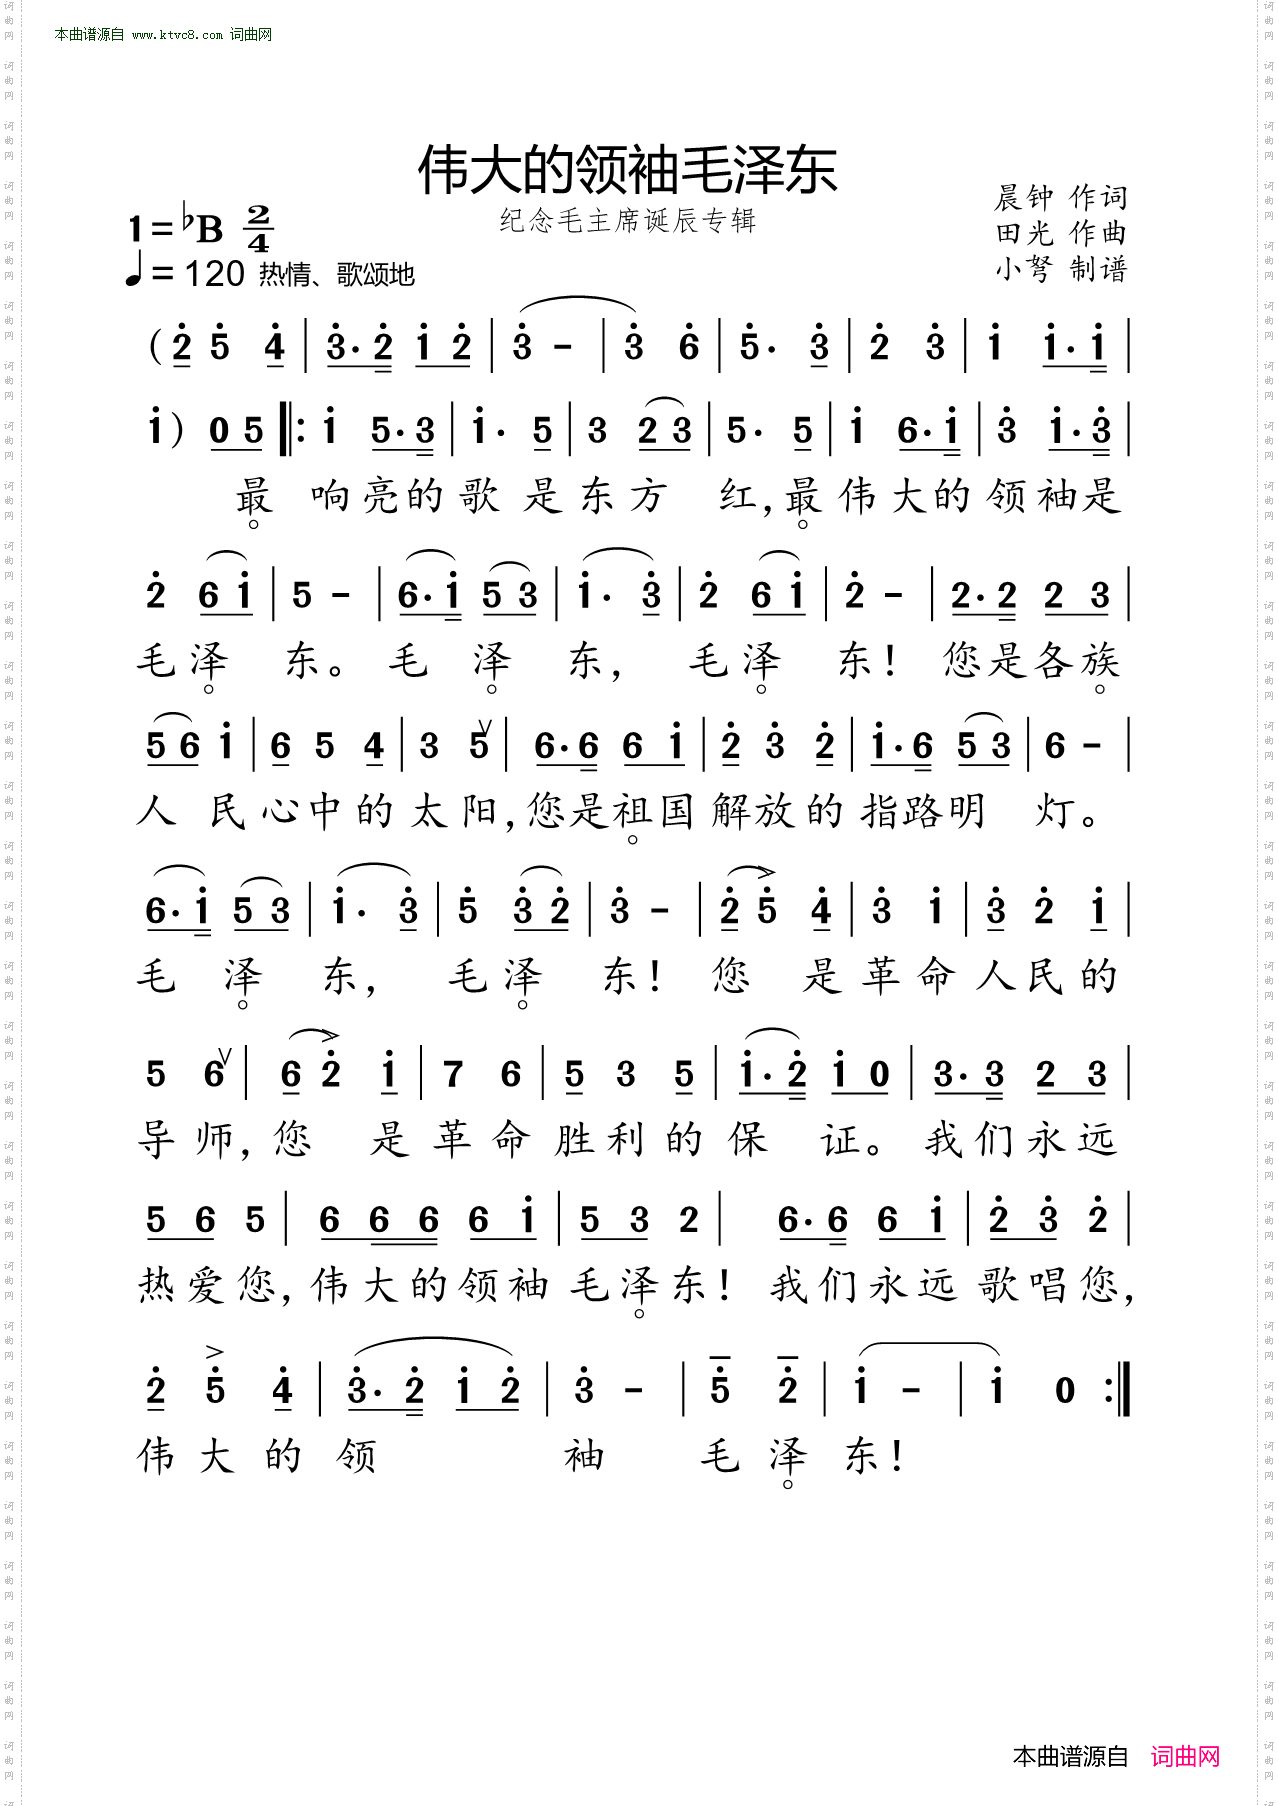 本曲谱源自 www.ktvc8.com 词曲网
伟大的领袖毛泽东
纪念毛主席诞辰专辑
晨钟 作词
田光 作曲
小弩 制谱
1=♭B 2/4
♩=120 热情、歌颂地
(2̇ 5̇ 4̇ | 3̇· 2̇ 1̇ 2̇ | 3̇ - | 3̇ 6̇ | 5̇· 3̇ | 2̇ 3̇ | 1̇ 1̇· 1̇ |
1̇) 0 5 ‖: 1̇ 5· 3 | 1̇· 5 | 3 2 3 | 5· 5 | 1̇ 6· 1̇ | 3̇ 1̇· 3̇ |
最 响亮的歌 是东方 红,最伟大的领袖是
2̇ 6 1̇ | 5 - | 6· 1̇ 5 3 | 1̇· 3̇ | 2̇ 6 1̇ | 2̇ - | 2· 2 2 3 |
毛泽 东。 毛 泽 东, 毛泽 东! 您是各族
5 6 1̇ | 6 5 4 | 3 5 ∨ | 6· 6 6 1̇ | 2̇ 3̇ 2̇ | 1̇· 6 5 3 | 6 - |
人 民心中的太阳,您是祖国解放的指路明 灯。
6· 1̇ 5 3 | 1̇· 3̇ | 5̇ 3̇ 2̇ | 3̇ - | 2̇ 5̇ 4̇ | 3̇ 1̇ | 3̇ 2̇ 1̇ |
毛 泽 东, 毛泽 东! 您 是革命人民的
5 6 ∨ | 6 2̇ 1̇ | 7 6 | 5 3 5 | 1̇· 2̇ 1̇ 0 | 3· 3 2 3 |
导师,您 是革命胜利的保 证。我们永远
5 6 5 | 6 6 6 6 1̇ | 5 3 2 | 6· 6 6 1̇ | 2̇ 3̇ 2̇ |
热爱您,伟大的领袖毛泽东! 我们永远歌唱您,
2̇ 5̇ 4̇ | 3̇· 2̇ 1̇ 2̇ | 3̇ - | 5̇ 2̇ | 1̇ - | 1̇ 0 :‖
伟大的领 袖 毛泽东!
本曲谱源自 词曲网